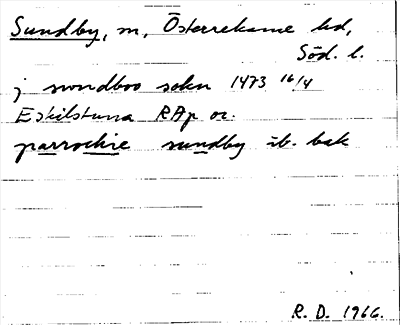 Sundby, sn, Österrekarne hd,
Söd. l.
j swndboo sokn 1473 16/4
Eskilstuna RAp or.
parrochie sundby ib. bak
R. D. 1966.